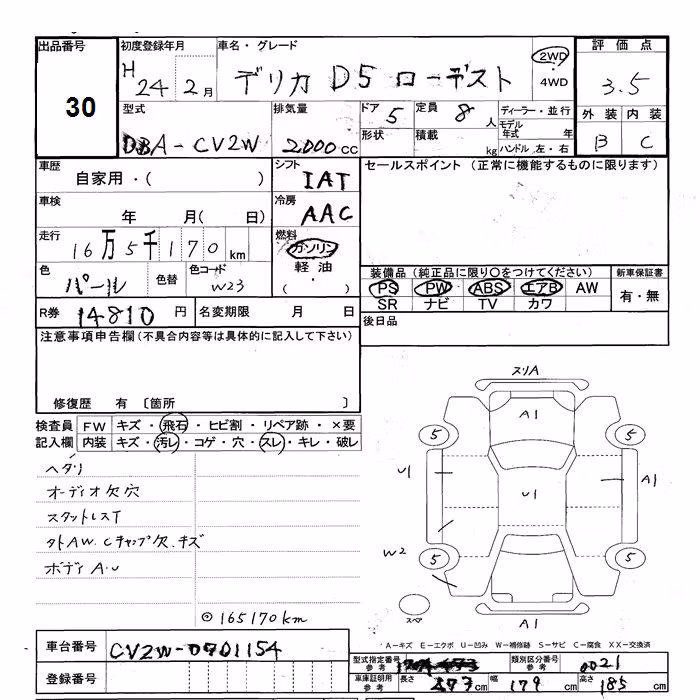 出品番号 初度登録年月 車名・グレード 評価点
30 H 24 2月 デリカ D5 ローデスト 2WD 4WD 3.5
外装 内装
B C
型式 排気量 ドア 5 定員 8 人 ディーラー・並行
DBA-CV2W 2000cc 形状 積載 kg モデル年式 年 ハンドル 左・右
車歴 シフト セールスポイント (正常に機能するものに限ります)
自家用・( ) IAT
車検 冷房
年 月( 日) AAC
走行 燃料
16万5千170km ガソリン
軽油
( ・ )
色 パール 色替 色コード W23
装備品(純正品に限り○をつけてください) 新車保証書
PS PW ABS エアB AW 有・無
SR ナビ TV カワ
R券 14810円 名変期限 月 日
後日品
注意事項申告欄(不具合内容等は具体的に記入して下さい)
修復歴 有 〔箇所 〕
検査員 FW キズ・飛石・ヒビ割・リペア跡・×要
記入欄 内装 キズ・汚レ・コゲ・穴・スレ・キレ・破レ
ヘタリ
オーディオ欠穴
スタットレスT
外AW.Cチャップ欠.キズ
ボディA.U
◎165170km
スリA
A1
5 5
U1 U1 A1
W2 5 5
スペア A1
A-キズ E-エクボ U-凹み W-補修跡 S-サビ C-腐食 XX-交換済
車台番号 CV2W-0701154
登録番号
型式指定番号 参考 類別区分番号 参考 0021
車庫証明用 参考 長さ 473cm 幅 179cm 高さ 185cm